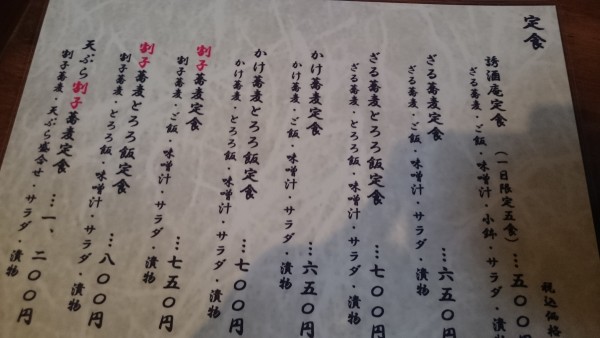 定食
税込価格
誘酒庵定食(一日限定五食)…五〇〇円
ざる蕎麦・ご飯・味噌汁・小鉢・サラダ・漬物
ざる蕎麦定食…六五〇円
ざる蕎麦・ご飯・味噌汁・サラダ・漬物
ざる蕎麦とろろ飯定食…七〇〇円
ざる蕎麦・とろろ飯・味噌汁・サラダ・漬物
かけ蕎麦定食…六五〇円
かけ蕎麦・ご飯・味噌汁・サラダ・漬物
かけ蕎麦とろろ飯定食…七〇〇円
かけ蕎麦・とろろ飯・味噌汁・サラダ・漬物
割子蕎麦定食…七五〇円
割子蕎麦・ご飯・味噌汁・サラダ・漬物
割子蕎麦とろろ飯定食…八〇〇円
割子蕎麦・とろろ飯・味噌汁・サラダ・漬物
天ぷら割子蕎麦定食…一、二〇〇円
割子蕎麦・天ぷら盛合せ・サラダ・漬物